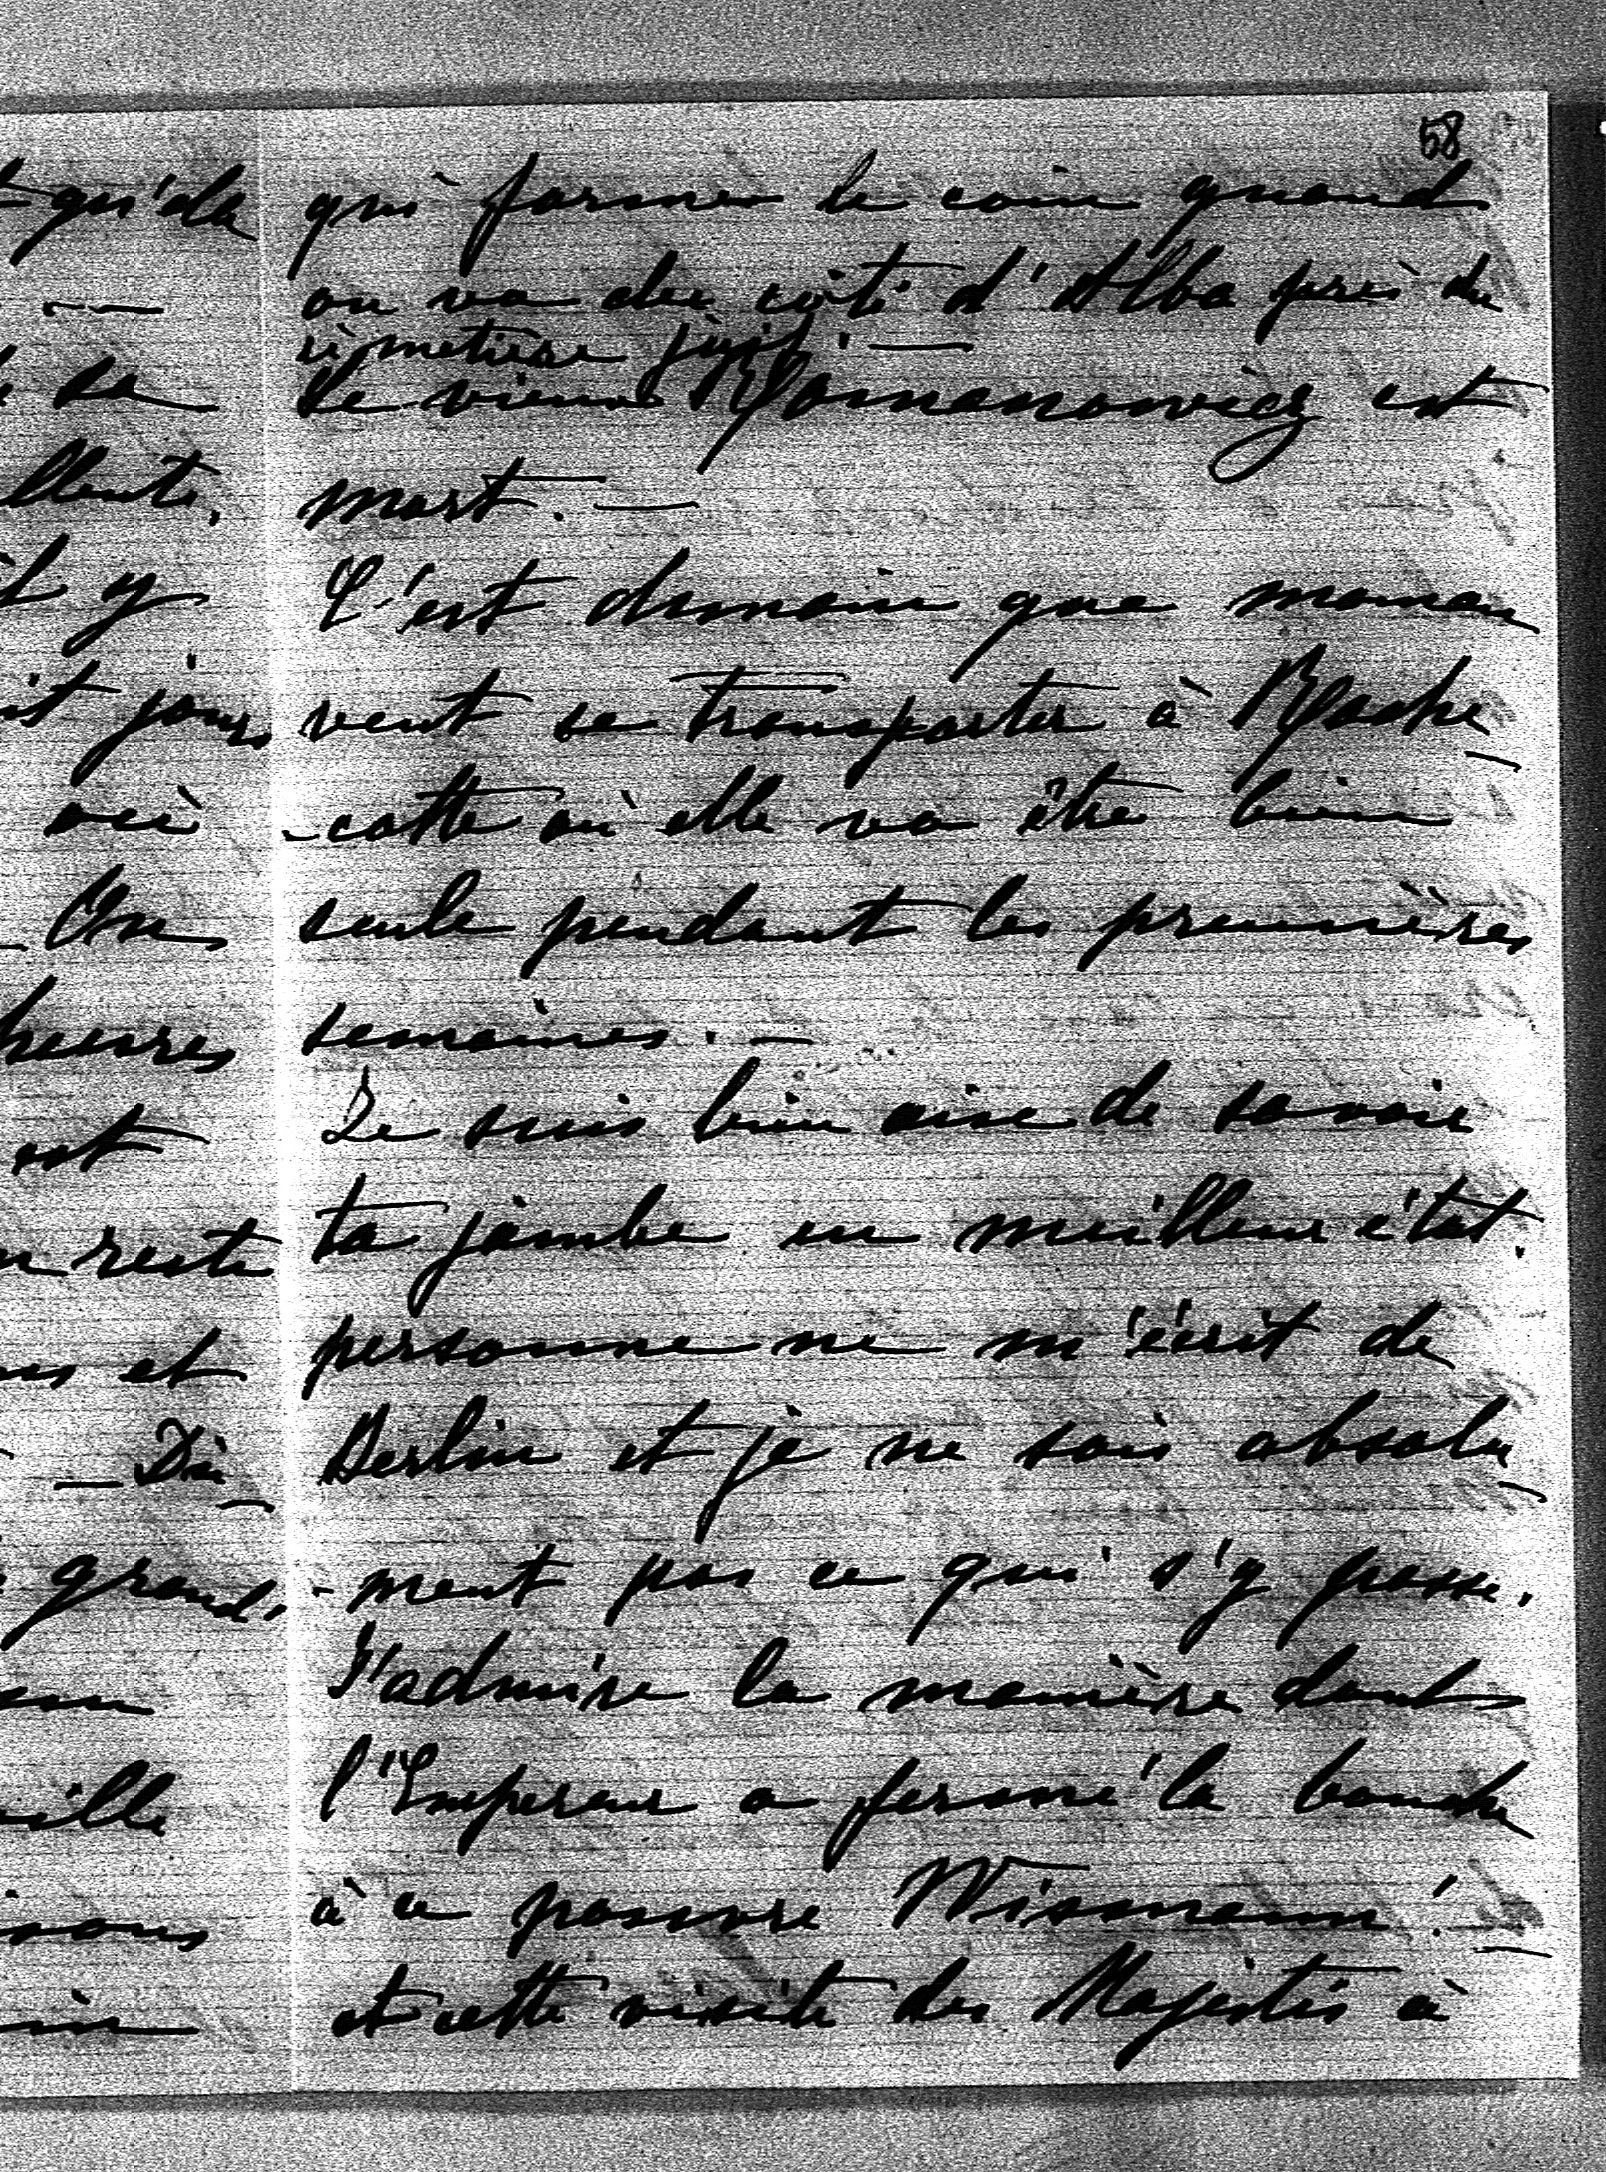 58
qui former le coin quand
on va du côté d'Alba près du
cimetière juif. —
Le vieux Romanowicz est
mort. —
C'est demain que maman
veut se transporter à Roche-
-cotte où elle va être bien
seule pendant les premières
semaines. —
Je suis bien aise de savoir
ta jambe en meilleur état.
personne ne m'écrit de
Berlin et je ne sais absolu-
-ment pas ce qui s'y passe.
J'admire la manière dont
l'Empereur a fermé la bouche
à ce pauvre Wismann! —
et cette visite des Majestés à